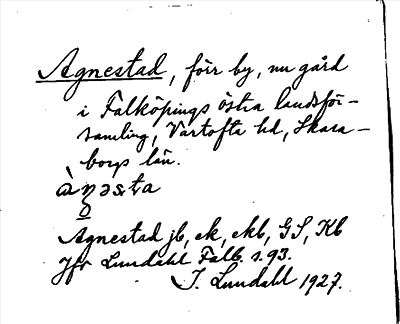 Agnestad, förr by, nu gård
i Falköpings östra landsför-
samling, Vartofta hd, Skara-
borgs län.
Agnestad jb, ek, ekb, GS, Kb
Jfr Lundahl Falb. s. 93.
I. Lundahl 1927.